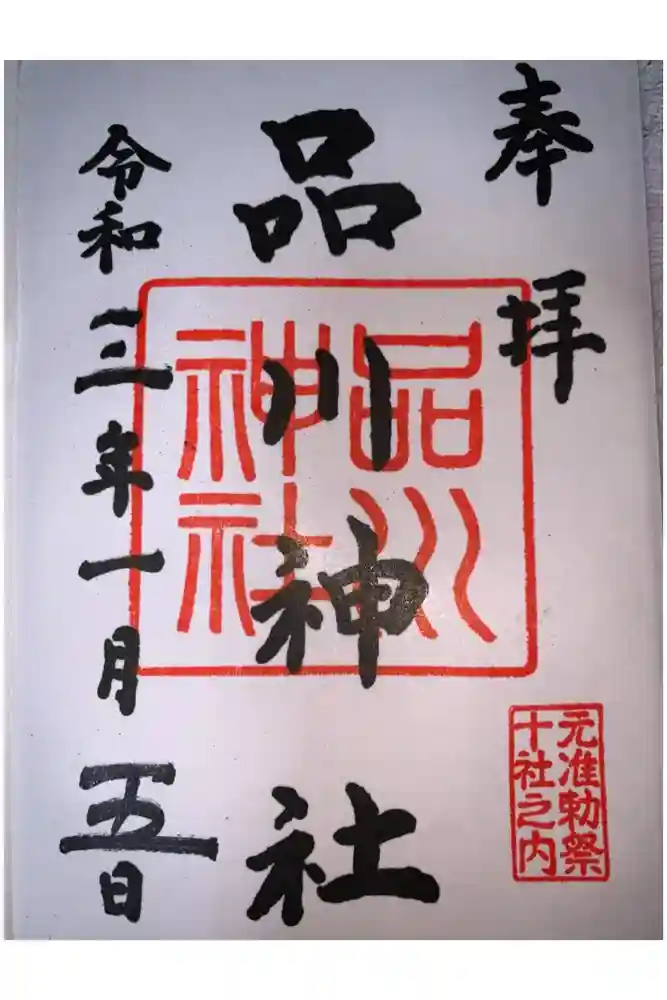 奉拝
品川神社
令和三年一月五日
品川
神社
元准勅祭
十社之内